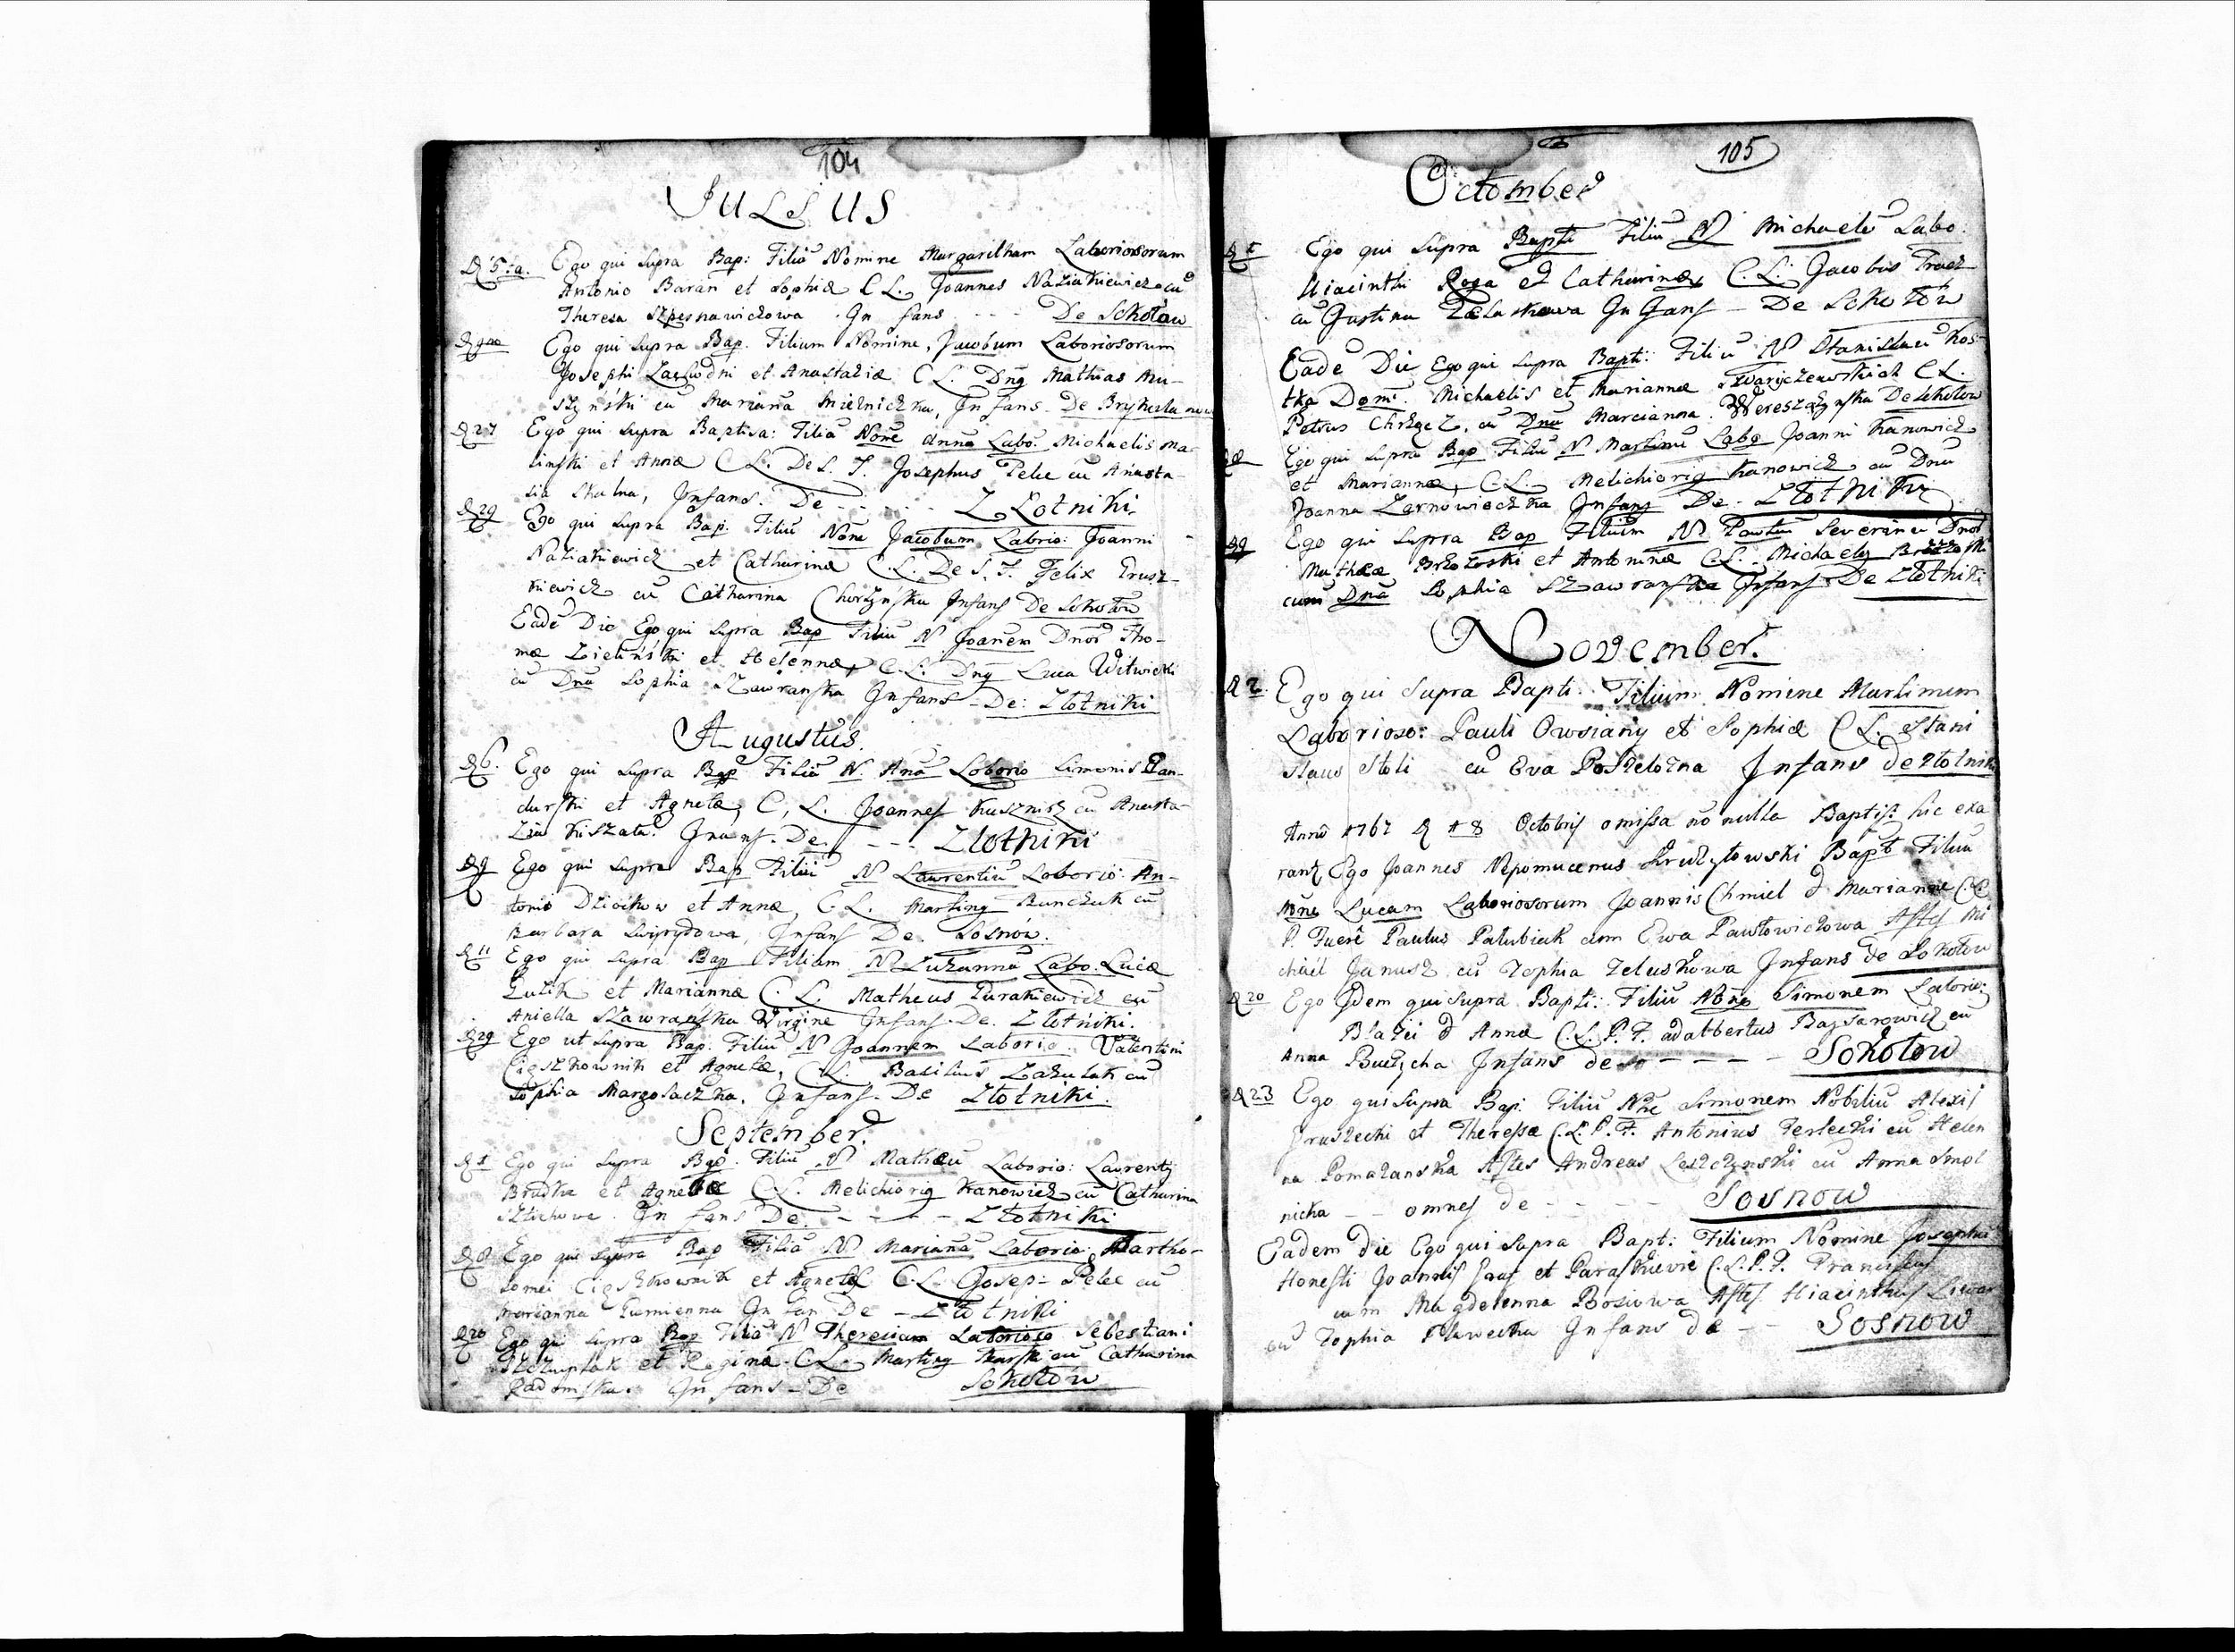 104
JULIUS
D 5ta. Ego qui Supra Bap: Filiā Nomine Margaritham Laboriosorum
Antonio Baran et Sophiæ C L. Joannes Naziakiewicz cū
Theresa Infans - - - De Sokołow
D 9na Ego qui Supra Bap. Filium Nomine, Jacobum Laboriosorum
Josephi et Anastaziæ C L. Dnq Mathias Mu-
szyński cū Mariāna Mielniczka, Infans - De
D 27 Ego qui Supra Baptisa: Filiā Nōne Annā Labo: Michaelis Ma-
linski et Annæ C L. De S. F. Josephus Pelc cū Anasta-
sia Skalna, Infans. De - - - - - Złotniki.
D 29 Ego qui Supra Bap. Filiū Nōne Jacobum Labrio: Joanni
Naziakiewicz et Catharinæ C. L. De S. F. Felix Prusz-
kiewicz cū Catharina Chorzyńska Infans De Sokołow
Eadē Die Ego qui Supra Bap Filiū N Joanem Dnor Tho-
mæ Zieliński et Helennæ, C. L. Dnq Luca Witwicki
cū Dna Sophia Szawranska Infans - De: Złotniki
Augustus.
D 6. Ego qui Supra Bap Filiā N. Anā Loborio Simonis Pan-
durski et Agnetæ, C, L. Joannes Kusznirz cū Anasta-
zia Infans. De. - - - Złotniki
D 9 Ego qui Supra Bap Filiū N Lawrentiū Loborio: An-
tonio Dziockow et Annæ, C. L. Martinq Bunczuk cū
Barbara Swirydowa, Infans De. Sosnów.
D 11 Ego qui Supra Bap Filiam N Zuzannā Labo. Lucæ
Zulik et Mariannæ C. L. Matheus Turakiewicz cū
Aniella Szawranska Virgine Infans. De. Złotniki.
D 29 Ego ut Supra Bap. Filiū N Joannem Laborio. Valentini
Cięszkownik et Agnetæ, C L. Basilius Zazulak cū
Sophia Margosaczka. Infans. De Złotniki.
September.
D 1 Ego qui Supra Bap. Filiū N Matheū Laborio: Laurenty
Brudka et Agnetæ C L. Melichiorig Kanowicz cū Catharina
Infans De. - - - - Złotniki
D 8 Ego qui Supra Bap Filiā N Mariānā Laborio: Bartho-
lomei Cięszkownik et Agnetæ C. L. Josep: Pelc cū
Marianna Gumienna Infan De - Złotniki
D 20 Ego qui Supra Bap Filiā N Theresiam Laborioso Sebestiani
Szczupłak et Reginæ C. L. Martinq cū Catharina
Radomska. Infans - De Sokołów
105
October
D 1 Ego qui Supra Bapti Filiū N Michaelē Labo.
Hiacinthi Roga et Catharinæ, C. L: Jacobus Tracz
cū Justina Zelaskowa Infans - De Sokołow
Eadē Die Ego qui Supra Bapti: Filiū N Stanisłaū Kos-
tka Domi. Michaelis et Mariannæ Szwaryczewskich C L.
Petrus Chrzącz, cū Dna Marcianna. Wereszczyńska De Sokołow
Ego qui Supra Bap Filiū N Martinū Labo Joanni Kanowicz
et Mariannæ, C. L. Melichiorig Kanowicz cū Dna
Joanna Zarnowieczka Infans De - Złotniki
D 9 Ego qui Supra Bap Filium N Pawłū Severinū Dnor
Mathæe Brzozoski et Antoninæ C. L. Michaelq Brzozoski
cum Dnā Sophia Szawranska Infans - De Złotniki
November.
D 2. Ego qui Supra Bapti. Filium Nomine Martinum
Laborioso: Pauli Owsiany et Sophiæ C L. Stani
słaus Stoli cū Eva Infans de Złotniki
Anno 1767 D 18 Octobris omissa nōnulla Baptis: hic exa
rant, Ego Joannes Nepomucenus Krużytowski Bapt Filiū
Nōne Lucam Laboriosorum Joannis Chmiel & Mariannæ C. L.
P. Fuerē Paulus Patubiak cum Ewa Pawłowiczowa Asstes Mi
chael Janusz cū Zophia Zeluskowa Infans de Sokołow
D 20 Ego Idem qui Supra Bapti: Filiū Nōne Simonem Laborio:
Błazei & Annæ C. L. P. F. adalbertus cū
Anna Infans de So - - - - Sokołow
D 23 Ego qui Supra Bap: Filiū Nne Simonem Nobiliū Alexij
Gruszecki et Theressæ C. L. P. F. Antonius Terlecki cū Helen
na Pomazanska Asstes Andreas Leszczynski cū Anna Smol
nicka - - omnes de - - - - Sosnow
Eadem die Ego qui Supra Bapt: Filium Nomine Josephū
Honesti Joannis et Paraskievie C. L. P. F. Franciscus
cum Magdelenna Bosiowa Asstes Hiacinthus
cū Zophia Infans de - - Sosnow